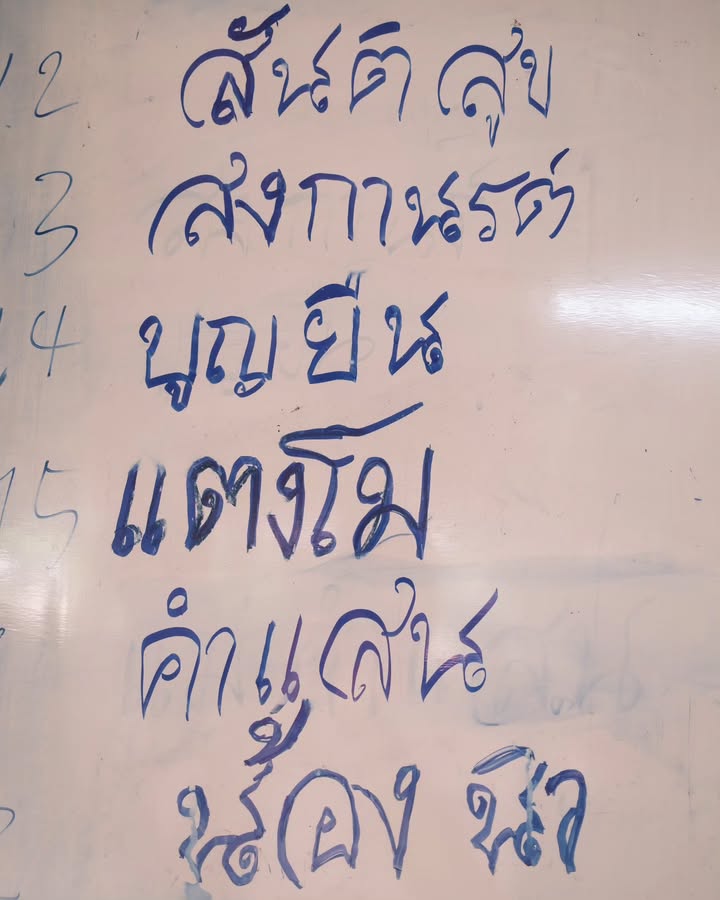 12 สันติสุข
13 สงกานรต์
14 บูญยืน
15 แตงโม
คำแสน
น้อง นิว